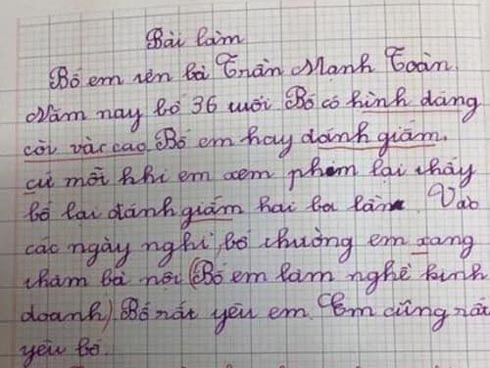 Bài làm
Bố em tên là Trần Mạnh Toàn.
Năm nay bố 36 tuổi Bố có hình dáng
còi và cao. Bố em hay đánh giấm.
cứ mỗi khi em xem phim lại thấy
bố lại đánh giấm hai ba lần. Vào
các ngày nghỉ, bố thường em xang
thăm bà nội (Bố em làm nghề kinh
doanh) Bố rất yêu em. Em cũng rất
yêu bố.